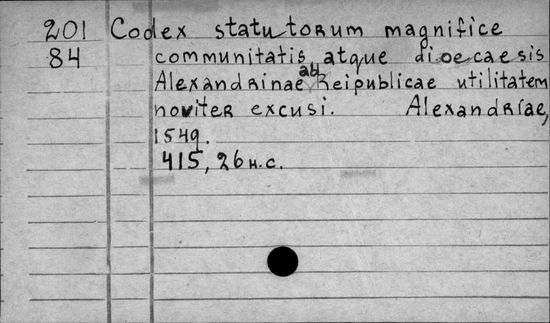 201 Codex statutorum magnifice
84 communitatis atque dioecaesis
Alexandrinae ab Reipublicae utilitatem
noviter excusi. Alexandriae,
1549.
415, 26 н.с.